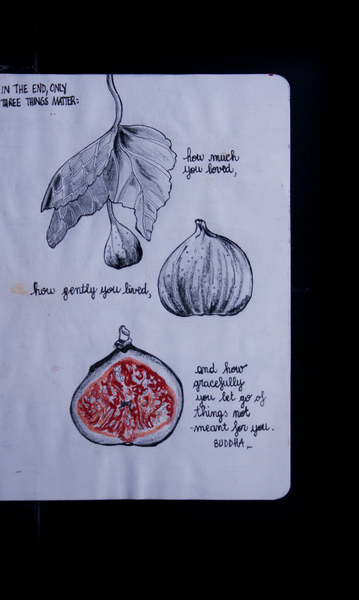 IN THE END, ONLY
THREE THINGS MATTER:
how much
you loved,
how gently you lived,
and how
gracefully
you let go of
things not
meant for you.
BUDDHA_